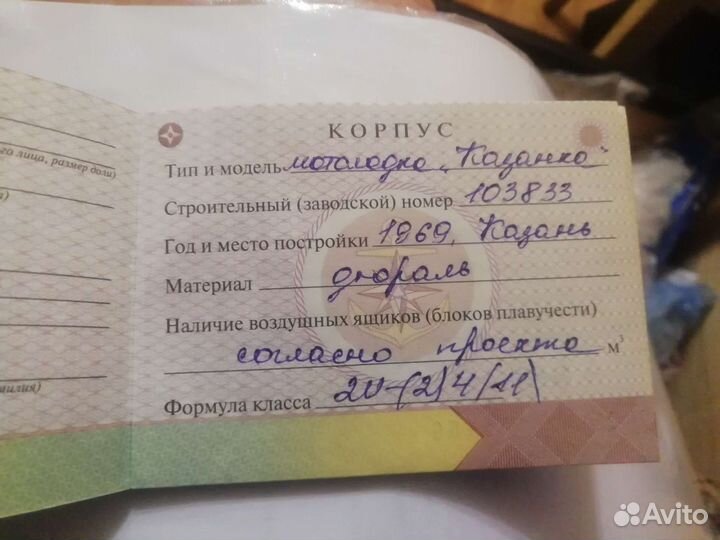 го лица, размер доли)
КОРПУС
Тип и модель мотолодка „Казанка"
Строительный (заводской) номер 103833
Год и место постройки 1969, Казань
Материал дюраль
Наличие воздушных ящиков (блоков плавучести)
согласно проекта м³
Формула класса
Avito